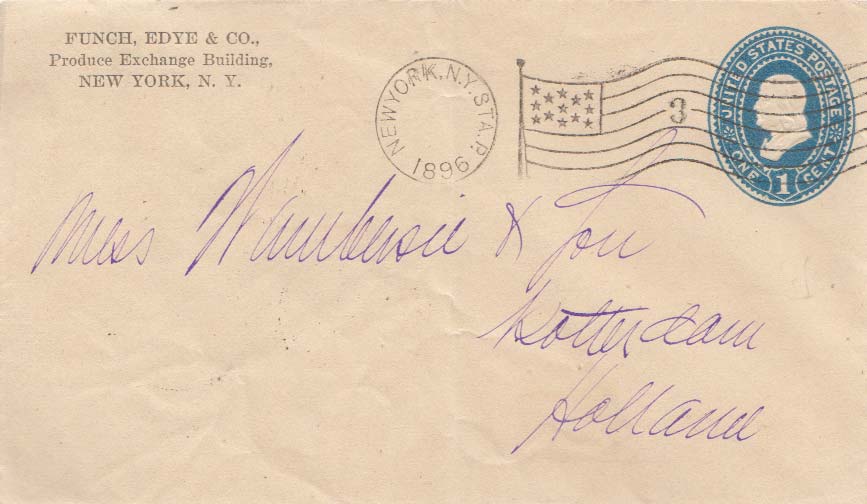 FUNCH, EDYE & CO.,
Produce Exchange Building,
NEW YORK, N. Y.
NEW YORK, N.Y. STA. P.
1896
3
UNITED STATES POSTAGE
ONE 1 CENT
Mess Wambersie & Son
Rotterdam
Holland